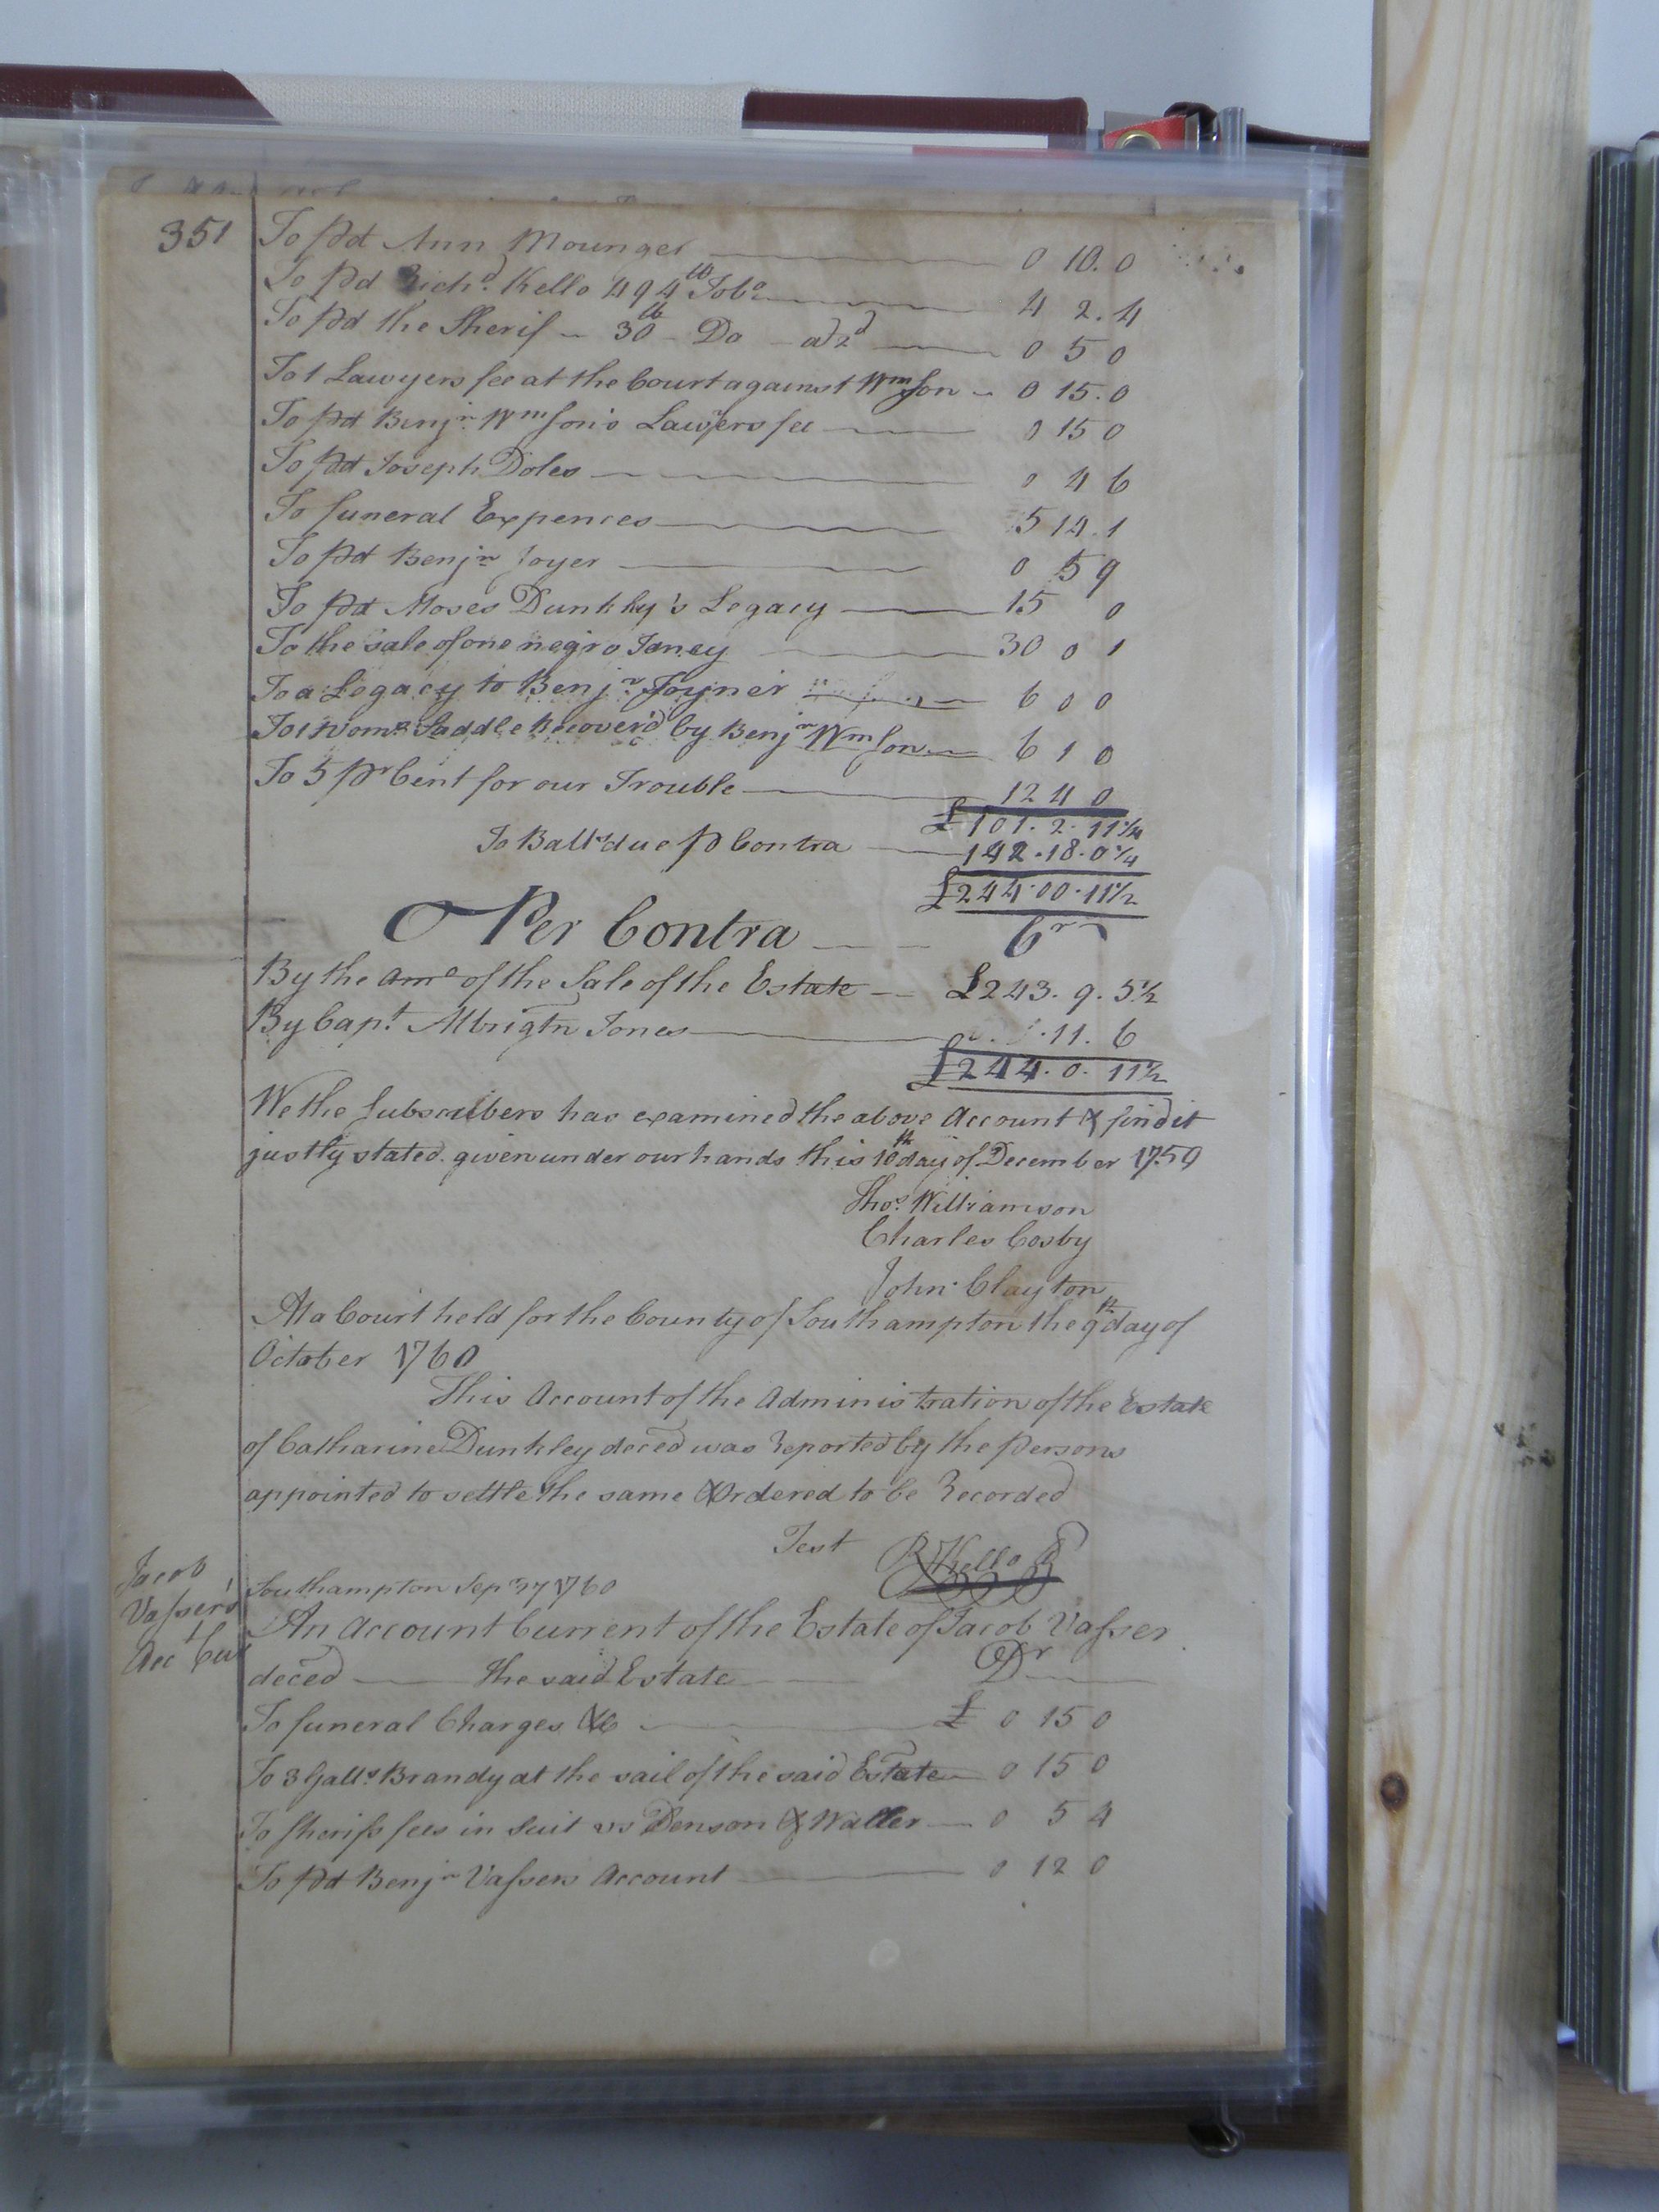 351
To pd Ann Mounger 0 10. 0
To pd Richd. Kello 494 lb Tobo 4 2. 4
To pd the Sherif - 30 lb - Do - a 2d 0 5 0
To 1 Lawyers fee at the Court against Wmson 0 15. 0
To pd Benjn. Wmson's Lawyers fee 0 15 0
To pd Joseph Doles 0 4 6
To funeral Expences 5 14. 1
To pd Benjn Joyer 0 5 9
To pd Moses Dunkly's Legacy 15 0
To the sale of one negro Janey 30 0 1
To a Legacy to Benjn. Joyner 6 0 0
To 1 Woms. Saddle Recover'd by Benjn Wmson 6 1 0
To 5 pr Cent for our Trouble 12 4 0
£101. 2. 11¼
To Balle due p Contra 142. 18. 0¼
£244. 00. 11½
Per Contra Cr
By the amo of the Sale of the Estate £243. 9. 5½
By Capt. Albrigtn Jones 11. 6
£244. 0. 11½
We the Subscribers has examined the above Account & find it
justly stated. given under our hands this 10th day of December 1759
Thos. Williamson
Charles Cosby
John Clayton
At a Court held for the County of Southampton the 9th day of
October 1760
This Account of the Administration of the Estate
of Catharine Dunkley deced was Reported by the persons
appointed to settle the same & Ordered to be Recorded
Test R Kello
Jacob
Vasser's
Acct Curt
Southampton Sepr 1760
An Account Current of the Estate of Jacob Vasser
deced the said Estate Dr
To funeral Charges &c £ 0 15 0
To 3 Galls Brandy at the sail of the said Estate 0 15 0
To sherifs fees in Suit vs Denson & Waller 0 5 4
To pd Benjn Vassers Account 0 12 0